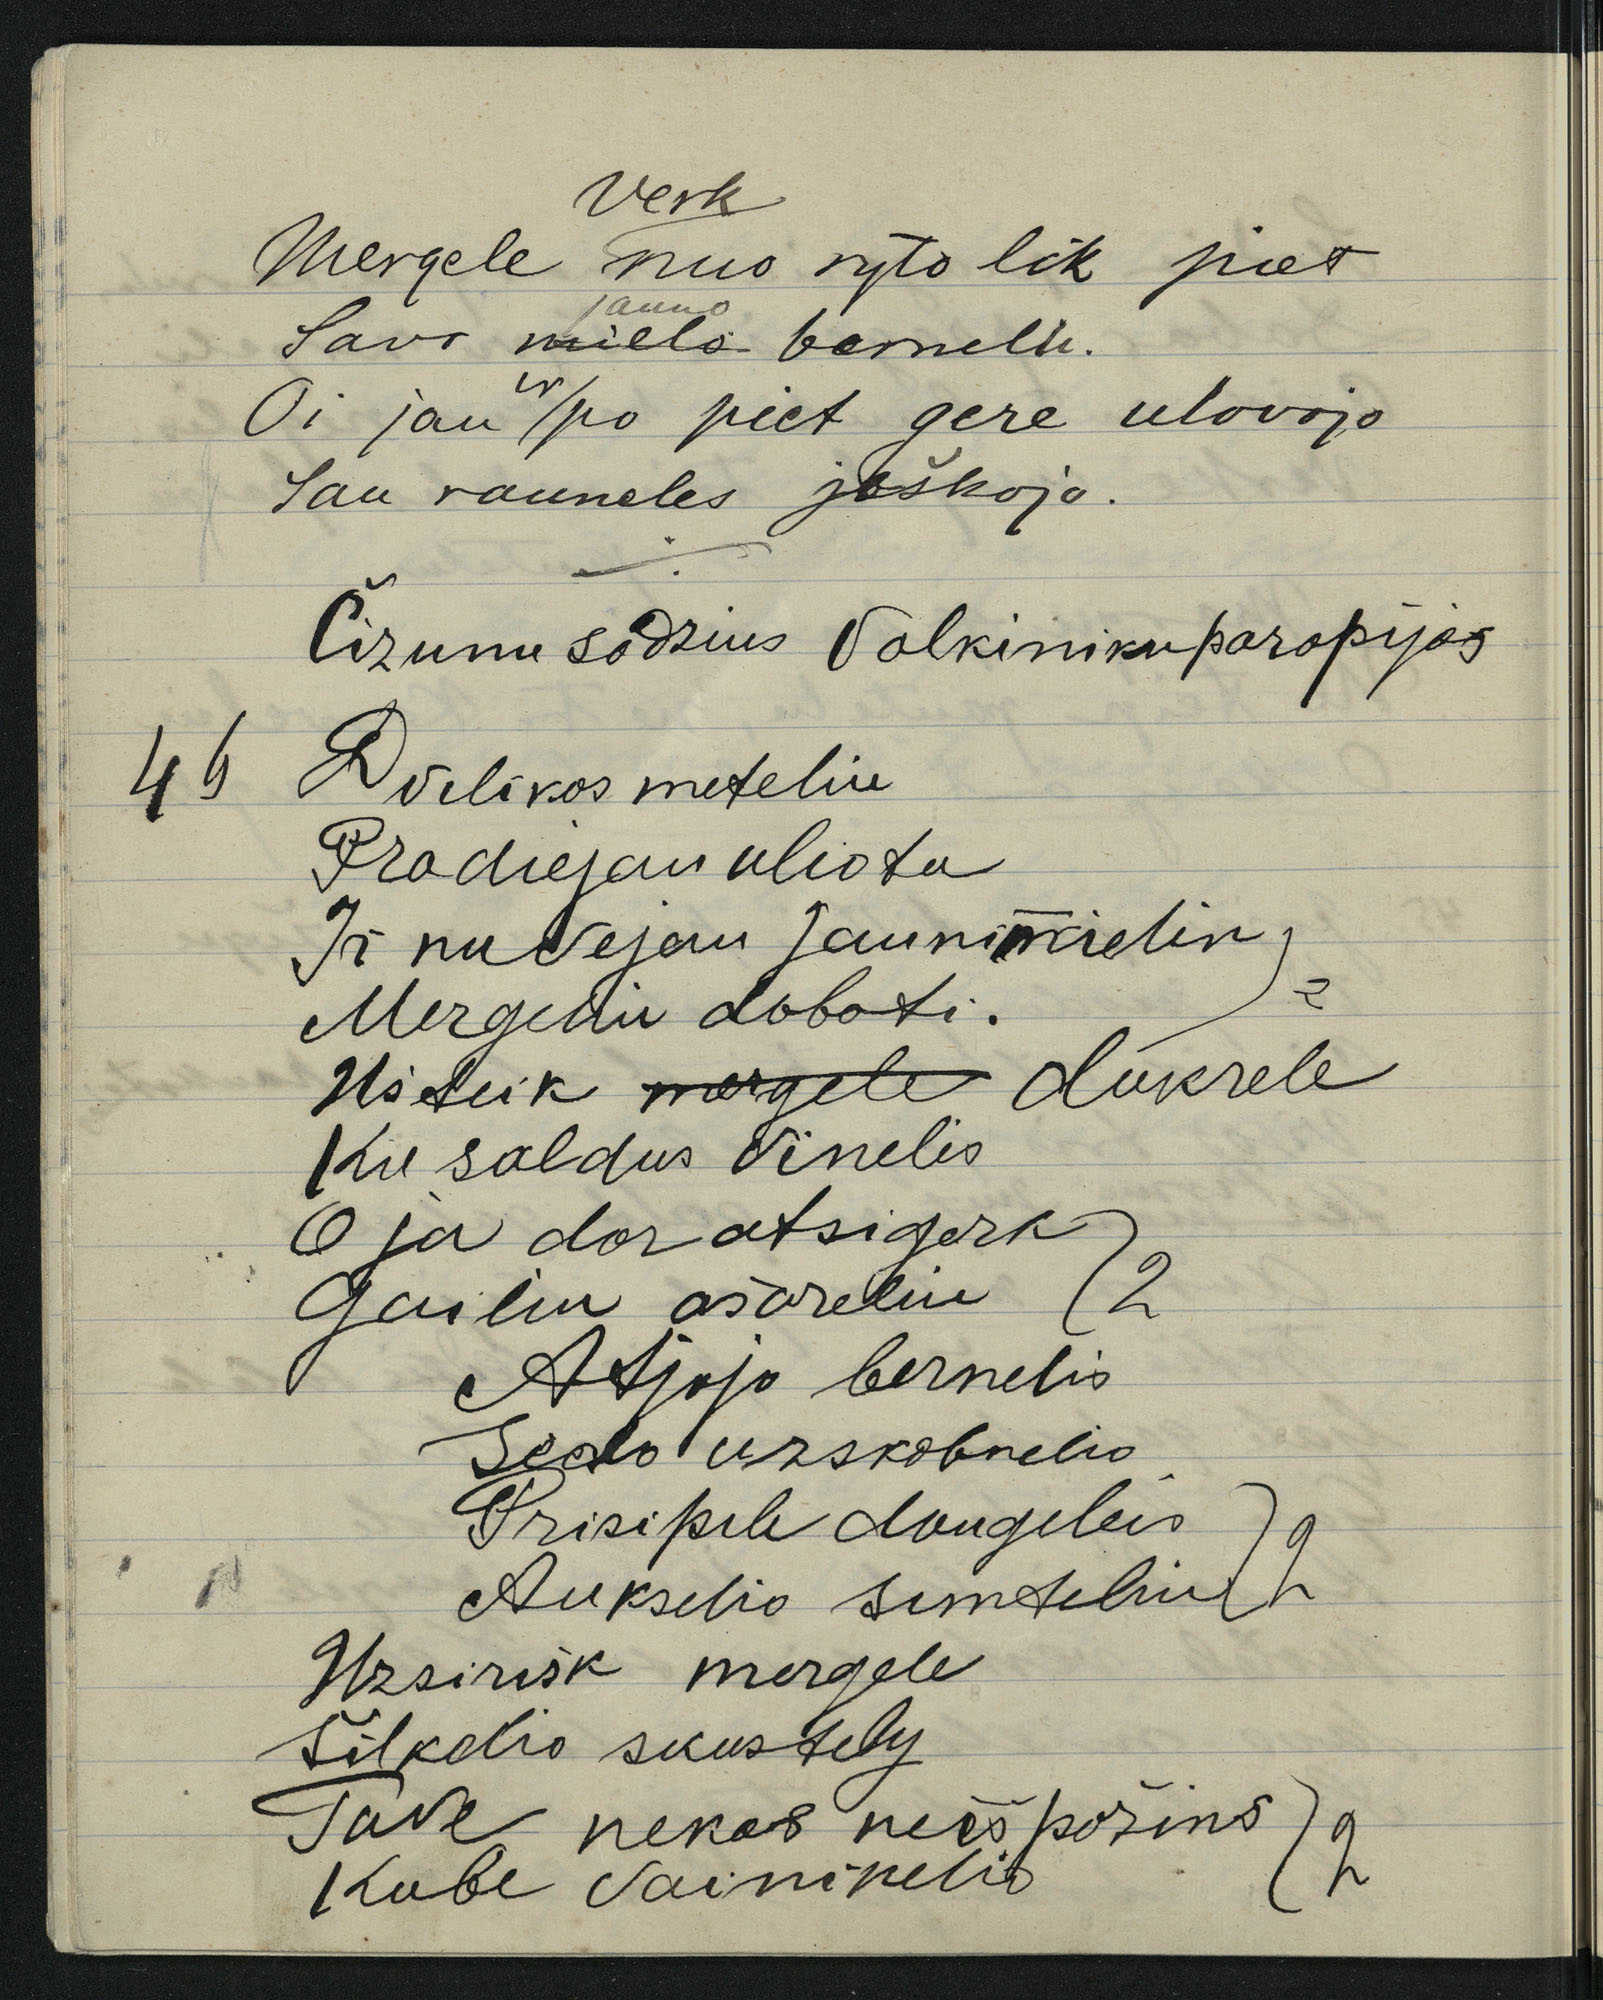 Verk
Mergele nuo ryto lik piet
jauno
Savo mielo bernelu.
Oi jau ir/po piet gere ulovojo
Sau rauneles ješkojo.
Čizunu sodzius Valkiniku parapijos
46 Dvelikos meteliu
Pradiejau uliotu
Ir nuvejau jaunimielin } 2
Mergeliu daboti.
Usteik mergele dukrele
Ku saldus vinelis
O ja dar atsigerk } 2
Gailiu ašareliu
Atjojo bernelis
Sedo uzskobnelio
Prisipile daugeleis } 2
Aukselio simteliu
Uzsirišk mergele
Šilkelio skustely
Tave nekas neišpažins } 2
Kabe vainikelio